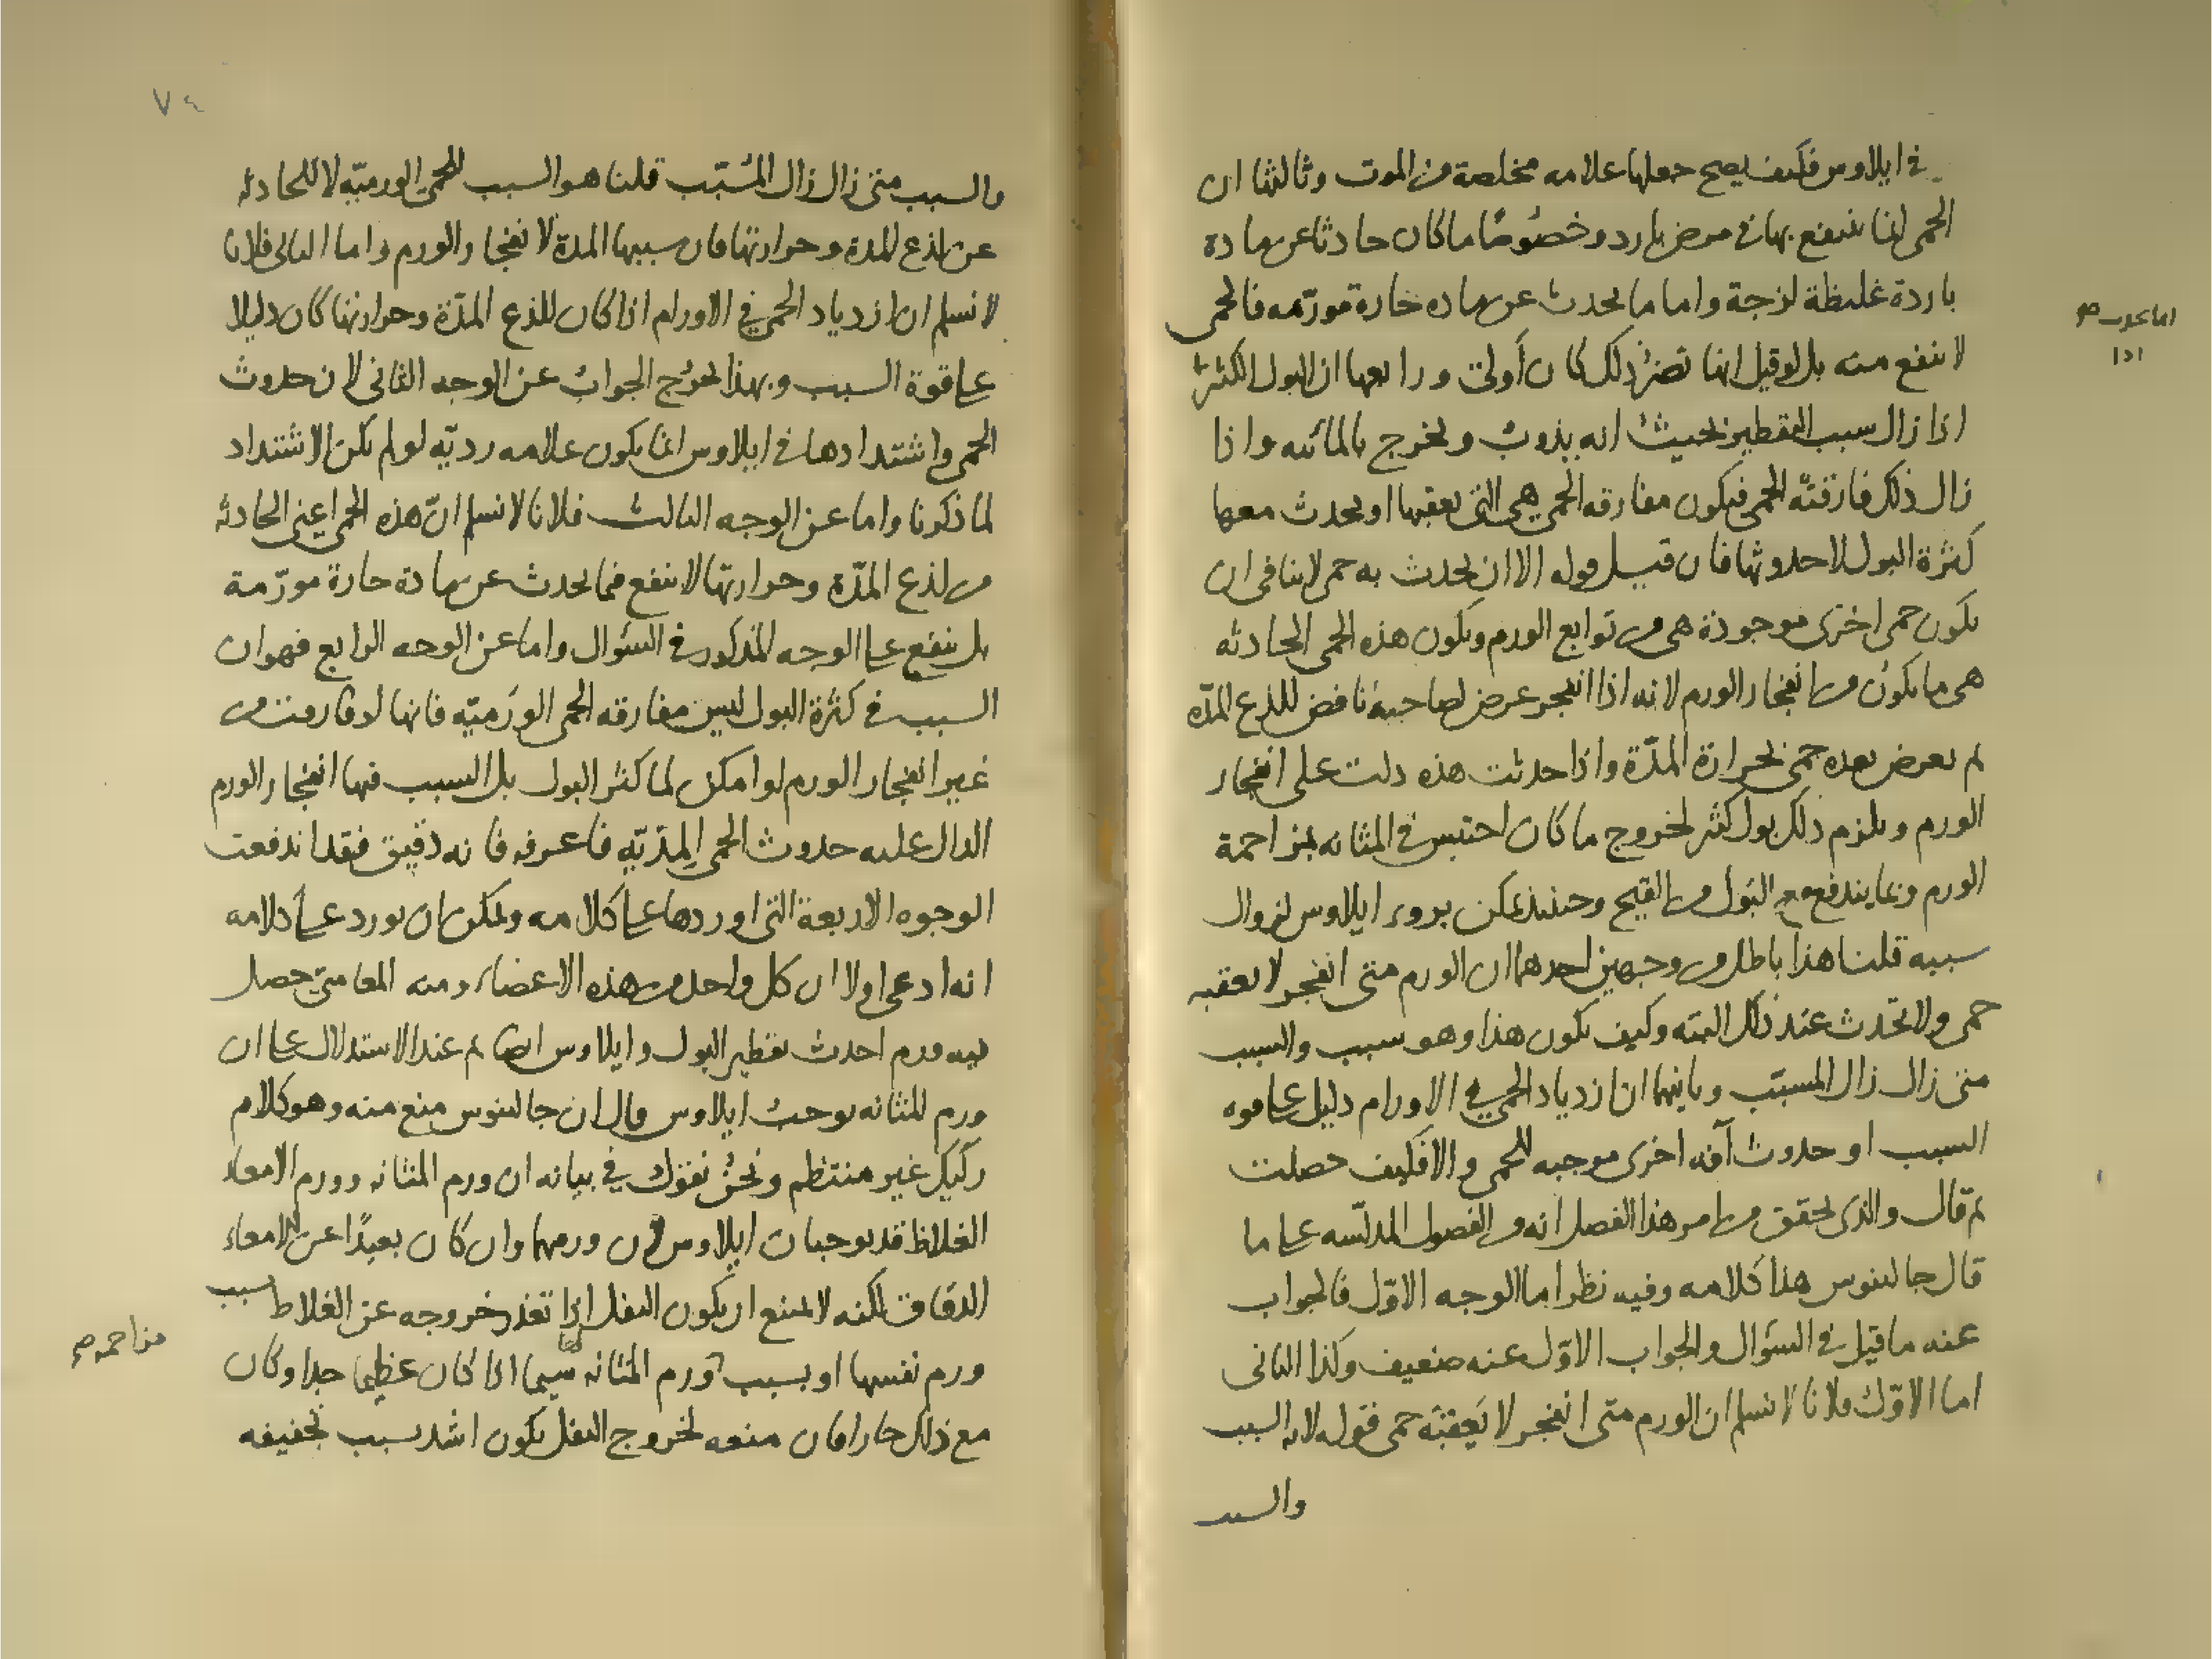 في ايلاوس فكيف يصح جعلها علامه مخلصة من الموت وثالثها ان
الحمى انما ينتفع بها في مرض بارد وخصوصًا ما كان حادثا عن مادة
باردة غليظة لزجة واما ما يحدث عن ماده حارة مورّمه فالحمى
لا ينفع منه بل لو قيل انها تضرّ ذلك كان أولى ورابعها ان البول الكثير
اذا زال سبب التقطير بحيث انه يذوب ويخرج بالمائيه واذا
زال ذلك فارقته الحمى فيكون مفارقه الحمى هي التي يعقبها او يحدث معها
كثرة البول لا حدوثها فان قيل قوله الا ان يحدث به حمى لا ينافي ان
يكون حمى اخرى موجودة هي من توابع الورم ويكون هذه الحمى الحادثه
هي ما يكون من انفجار الورم لانه اذا انفجر عرض لصاحبه نافض للذع المدّه
ثم يعرض بعده حمى لحرارة المدّة واذا حدثت هذه دلت على انفجار
الورم ويلزم ذلك بول كثير لخروج ما كان احتبس في المثانه بمزاحمة
الورم وبما يندفع مع البول من القيح وحينئذ يمكن بروء ايلاوس لزوال
سببه قلنا هذا باطل من وجهين احدهما ان الورم متى انفجر لا يعقبه
حمى ولا تحدث عند ذلك البته وكيف يكون هذا وهو سبب والسبب
متى زال زال المسبّب وثانيها ان ازدياد الحمى في الاورام دليل على قوه
السبب او حدوث آفه اخرى موجبه للحمى والا فكيف حصلت
ثم قال والذي تحقق من امر هذا الفصل انه من الفصول المدلّسه على ما
قال جالينوس هذا كلامه وفيه نظر اما الوجه الاوّل فالجواب
عنه ما قيل في السؤال والجواب الاوّل عنه ضعيف وكذا الثاني
اما الاوّل فلانا لا نسلم ان الورم متى انفجر لا يَعقبَه حمى قوله لانه السبب
والسبب
اما يحدث صح
اذا
٧٤
والسبب متى زال زال المسُبّب قلنا هو السبب للحمى الورميّه لا للحادثه
عن لذع المدة وحرارتها فان سببها المدة لا نفجار الورم واما الثاني فلانا
لا نسلم ان ازدياد الحمى في الاورام اذا كان للذع المدّة وحرارتها كان دليلا
على قوة السبب وبهذا يخرج الجواب عن الوجه الثاني لان حدوث
الحمى واشتدادها في ايلاوس انما يكون علامه رديّه لو لم يكن الاشتداد
لما ذكرنا واما عن الوجه الثالث فلانا لا نسلم انّ هذه الحمى اعني الحادثه
من لذع المدّه وحرارتها لا ينفع فيما يحدث عن مادة حارة مورّمة
بل ينفع على الوجه المذكور في السؤال واما عن الوجه الرابع فهو ان
السبب في كثرة البول ليس مفارقه الحمى الورَميّه فانها لو فارقت من
غير انفجار الورم لو امكن لما كثر البول بل السبب فيها انفجار الورم
الدال عليه حدوث الحمى المِدّيّه فاعرفه فانه دقيق فقد اندفعت
الوجوه الاربعة التي اوردها على كلامه ويمكن ان يورد على كلامه
انه ادعى اولا ان كل واحد من هذه الاعضاء ومنه المعا متى حصل
فيه ورم احدث تقطير البول وايلاوس ايضا ثم عند الاستدلال على ان
ورم المثانه يوجب ايلاوس قال ان جالينوس منع منه وهو كلام
ركيك غير منتظم ونحن نقول في بيانه ان ورم المثانه وورم الامعاء
الغلاظ قد يوجبان ايلاوس لان ورمها وان كان بعيدًا عن الامعاء
الدقاق لكنه لا يمتنع ان يكون الثفل اذا تعذر خروجه عن الغلاظ بسبب
ورم نفسها او بسبب ورم المثانه سيما اذا كان عظيما جدا وكان
مع ذلك حارا فان منعه لخروج الثفل يكون اشد بسبب تجفيفه
مزاحمه صح